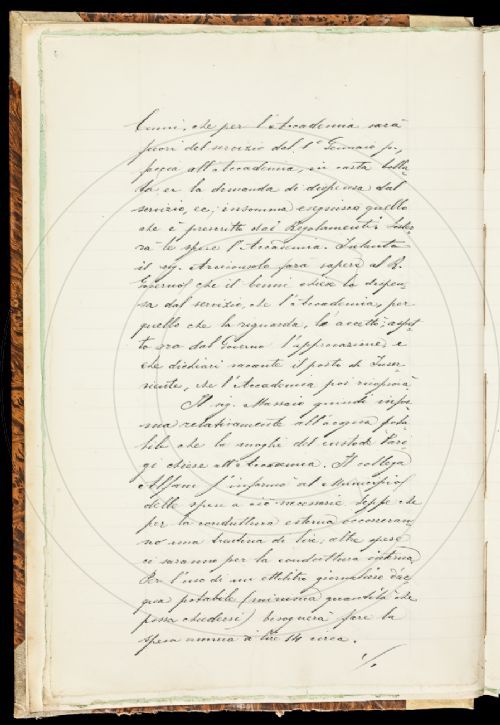 Cenni, che per l'Accademia sarà
fuori del servizio dal 1° Gennaio p.,
faccia all'Accademia, in carta bolla-
ta, la domanda di dispensa dal
servizio, ec; insomma eseguisca quello
che è prescritto dai Regolamenti. Soster-
rà le spese l'Accademia. Intanto
il sig. Arciconsolo farà sapere al R.
Governo che il Cenni chiese la dispen-
sa dal servizio, che l'Accademia, per
quello che la riguarda, la accettò; aspet-
ta ora dal Governo l'approvazione e
che dichiari vacante il posto di Inser-
viente, che l'Accademia poi ricoprirà
Il sig. Massaio quindi infor-
ma relativamente all'acqua pota-
bile che la moglie del custode Pari-
gi chiese all'Accademia. Il collega
Alfani s'informò al Municipio
delle spese a ciò necessarie. Seppe che
per la conduttura esterna occorreran-
no una trentina di lire; altre spese
ci saranno per la conduttura interna
Per l'uso di un ettolitro giornaliero d'ac-
qua potabile (minima quantità che
possa chiedersi) bisognerà fare la
spesa annua di lire 14 circa.